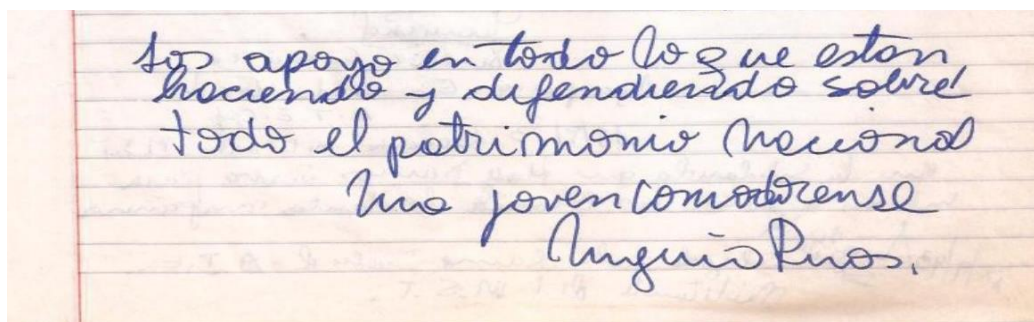 Los apoyo en todo lo que estan
haciendo y defendiendo sobre
todo el patrimonio nacional
Una joven comodorense